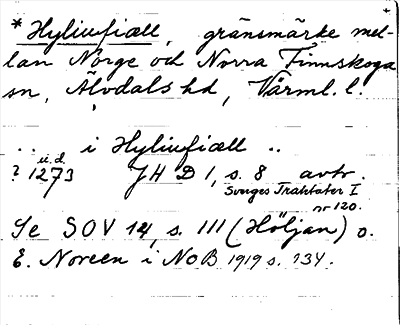 * Hyliufiæll, gränsmärke mel-
lan Norge och Norra Finnskoga
sn, Älvdals hd, Värml. l.
.. i Hyliufiæll ..
u.d.
? 1273 JH D 1, s. 8 avtr.
Sveriges Traktater I
nr 120.
Se SOV 14, s. 111 (Höljan) o.
E. Noreen i NoB 1919 s. 134.